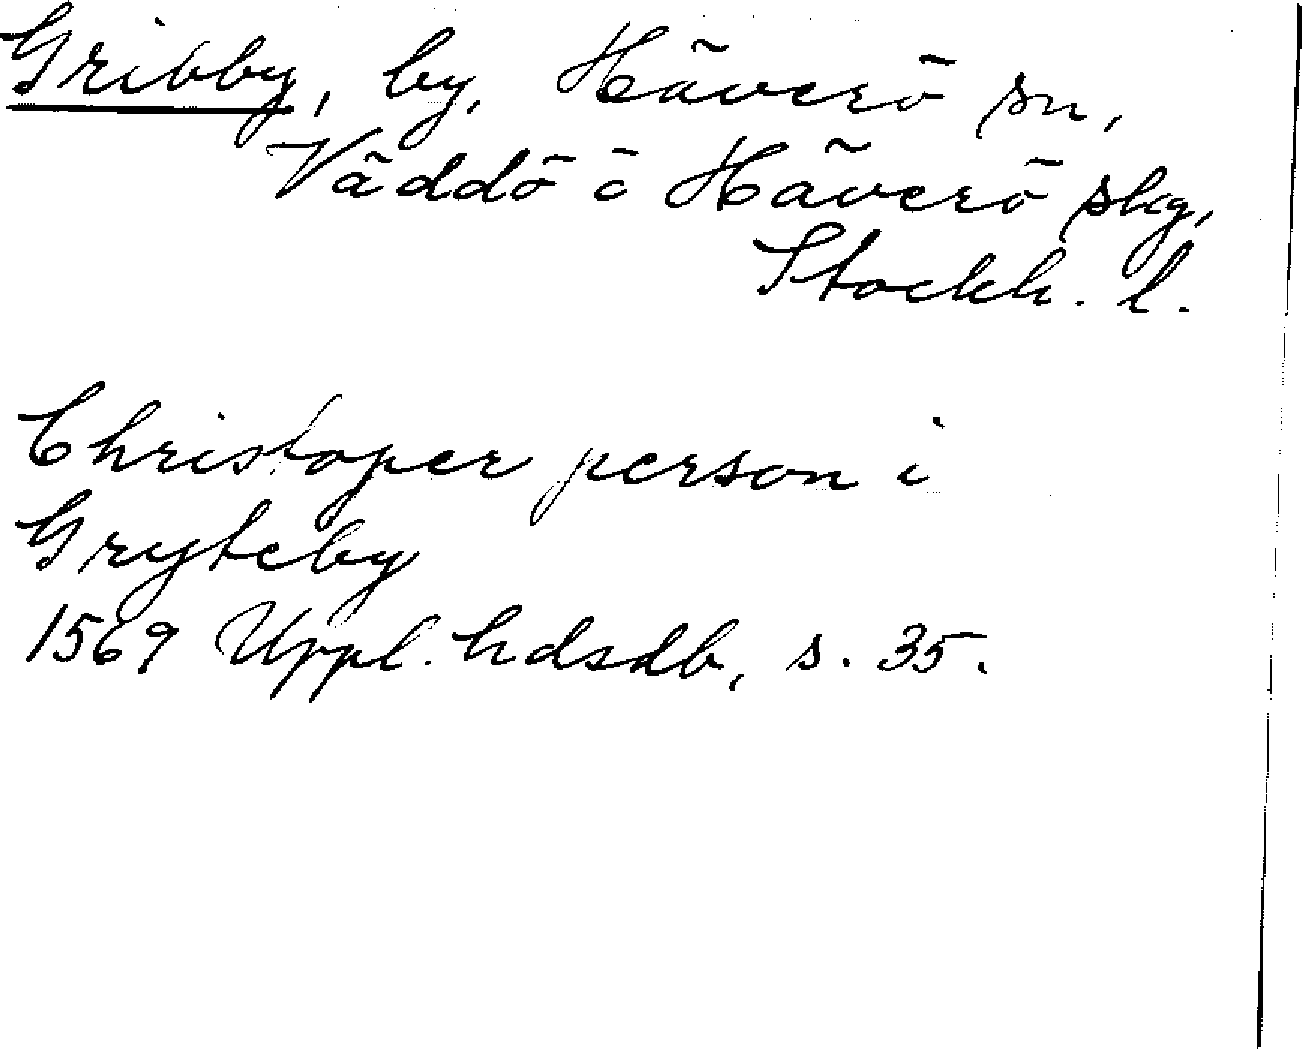 Gribby, by, Häverö sn,
Väddö o Häverö skg,
Stockh. l.
Christoper person i
Gryteby
1569 Uppl. hdsdb, s. 35.